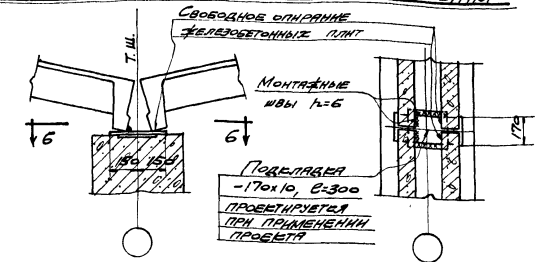 Свободное опирание
железобетонных плит
Т.Ш.
Монтажные
швы h=6
б
б
150 150
170
Подкладка
-170х10, ℓ=300
проектируется
при применении
проекта